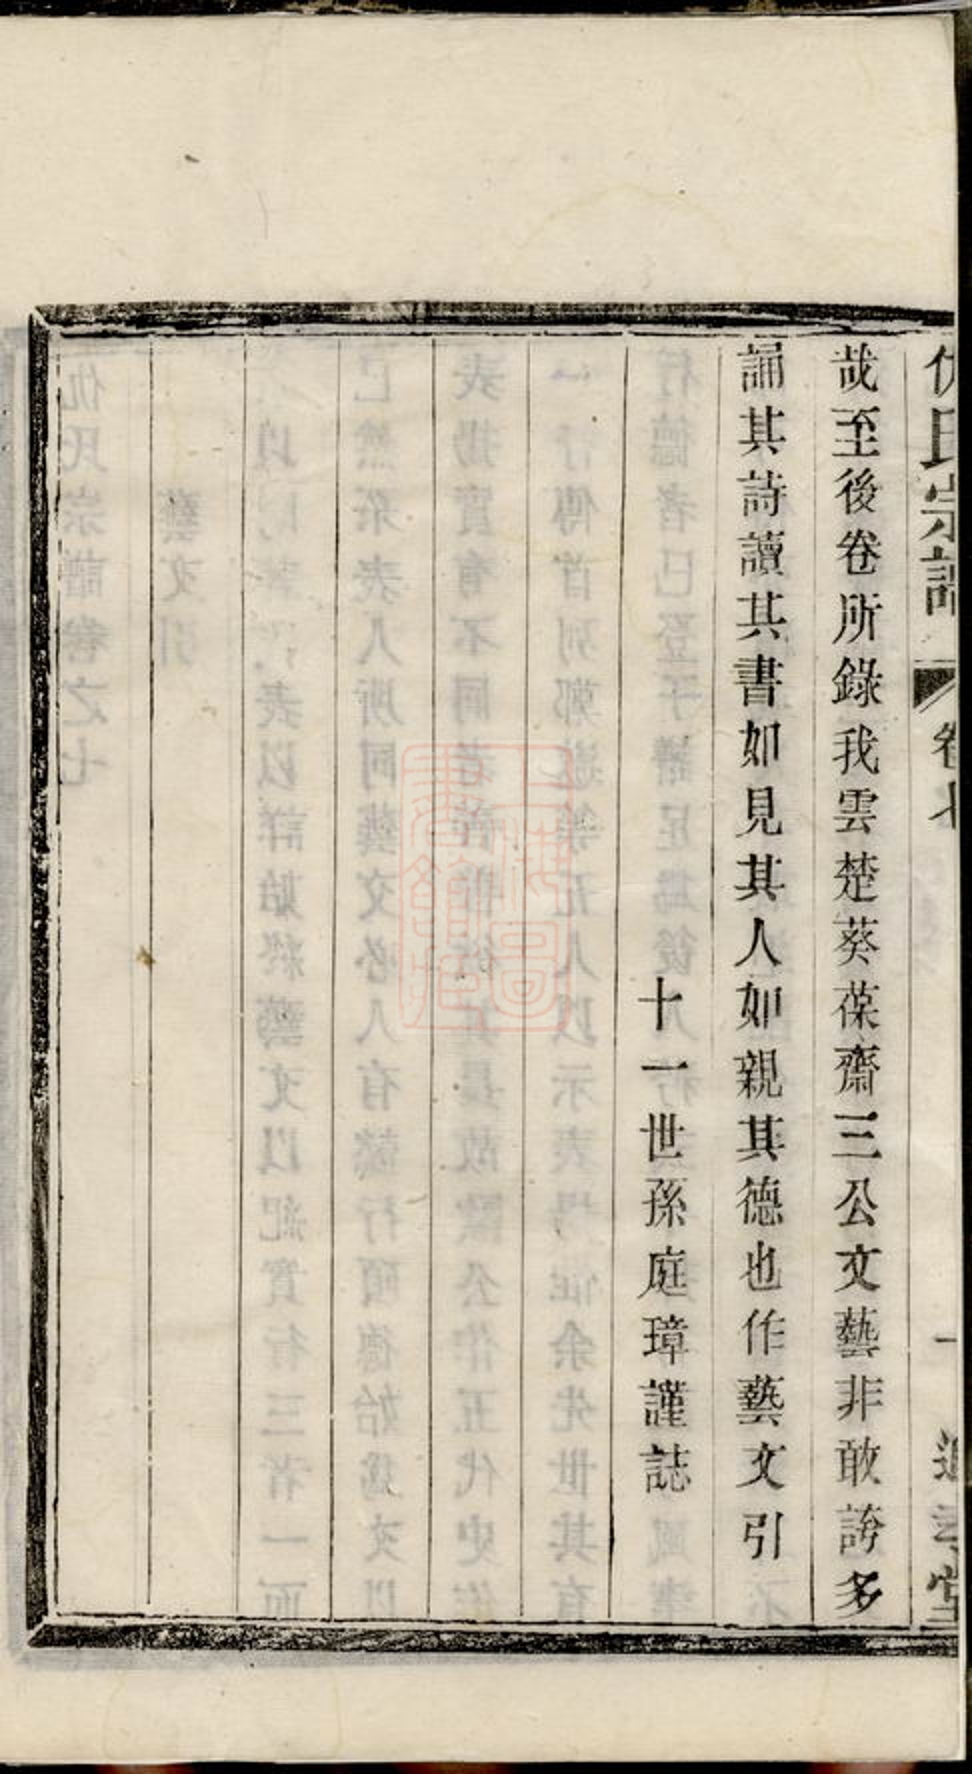 仇氏宗譜 卷七 一 追孝堂
哉至後卷所錄我雲楚葵葆齋三公文藝非敢誇多
誦其詩讀其書如見其人如親其德也作藝文引
十一世孫庭璋謹誌